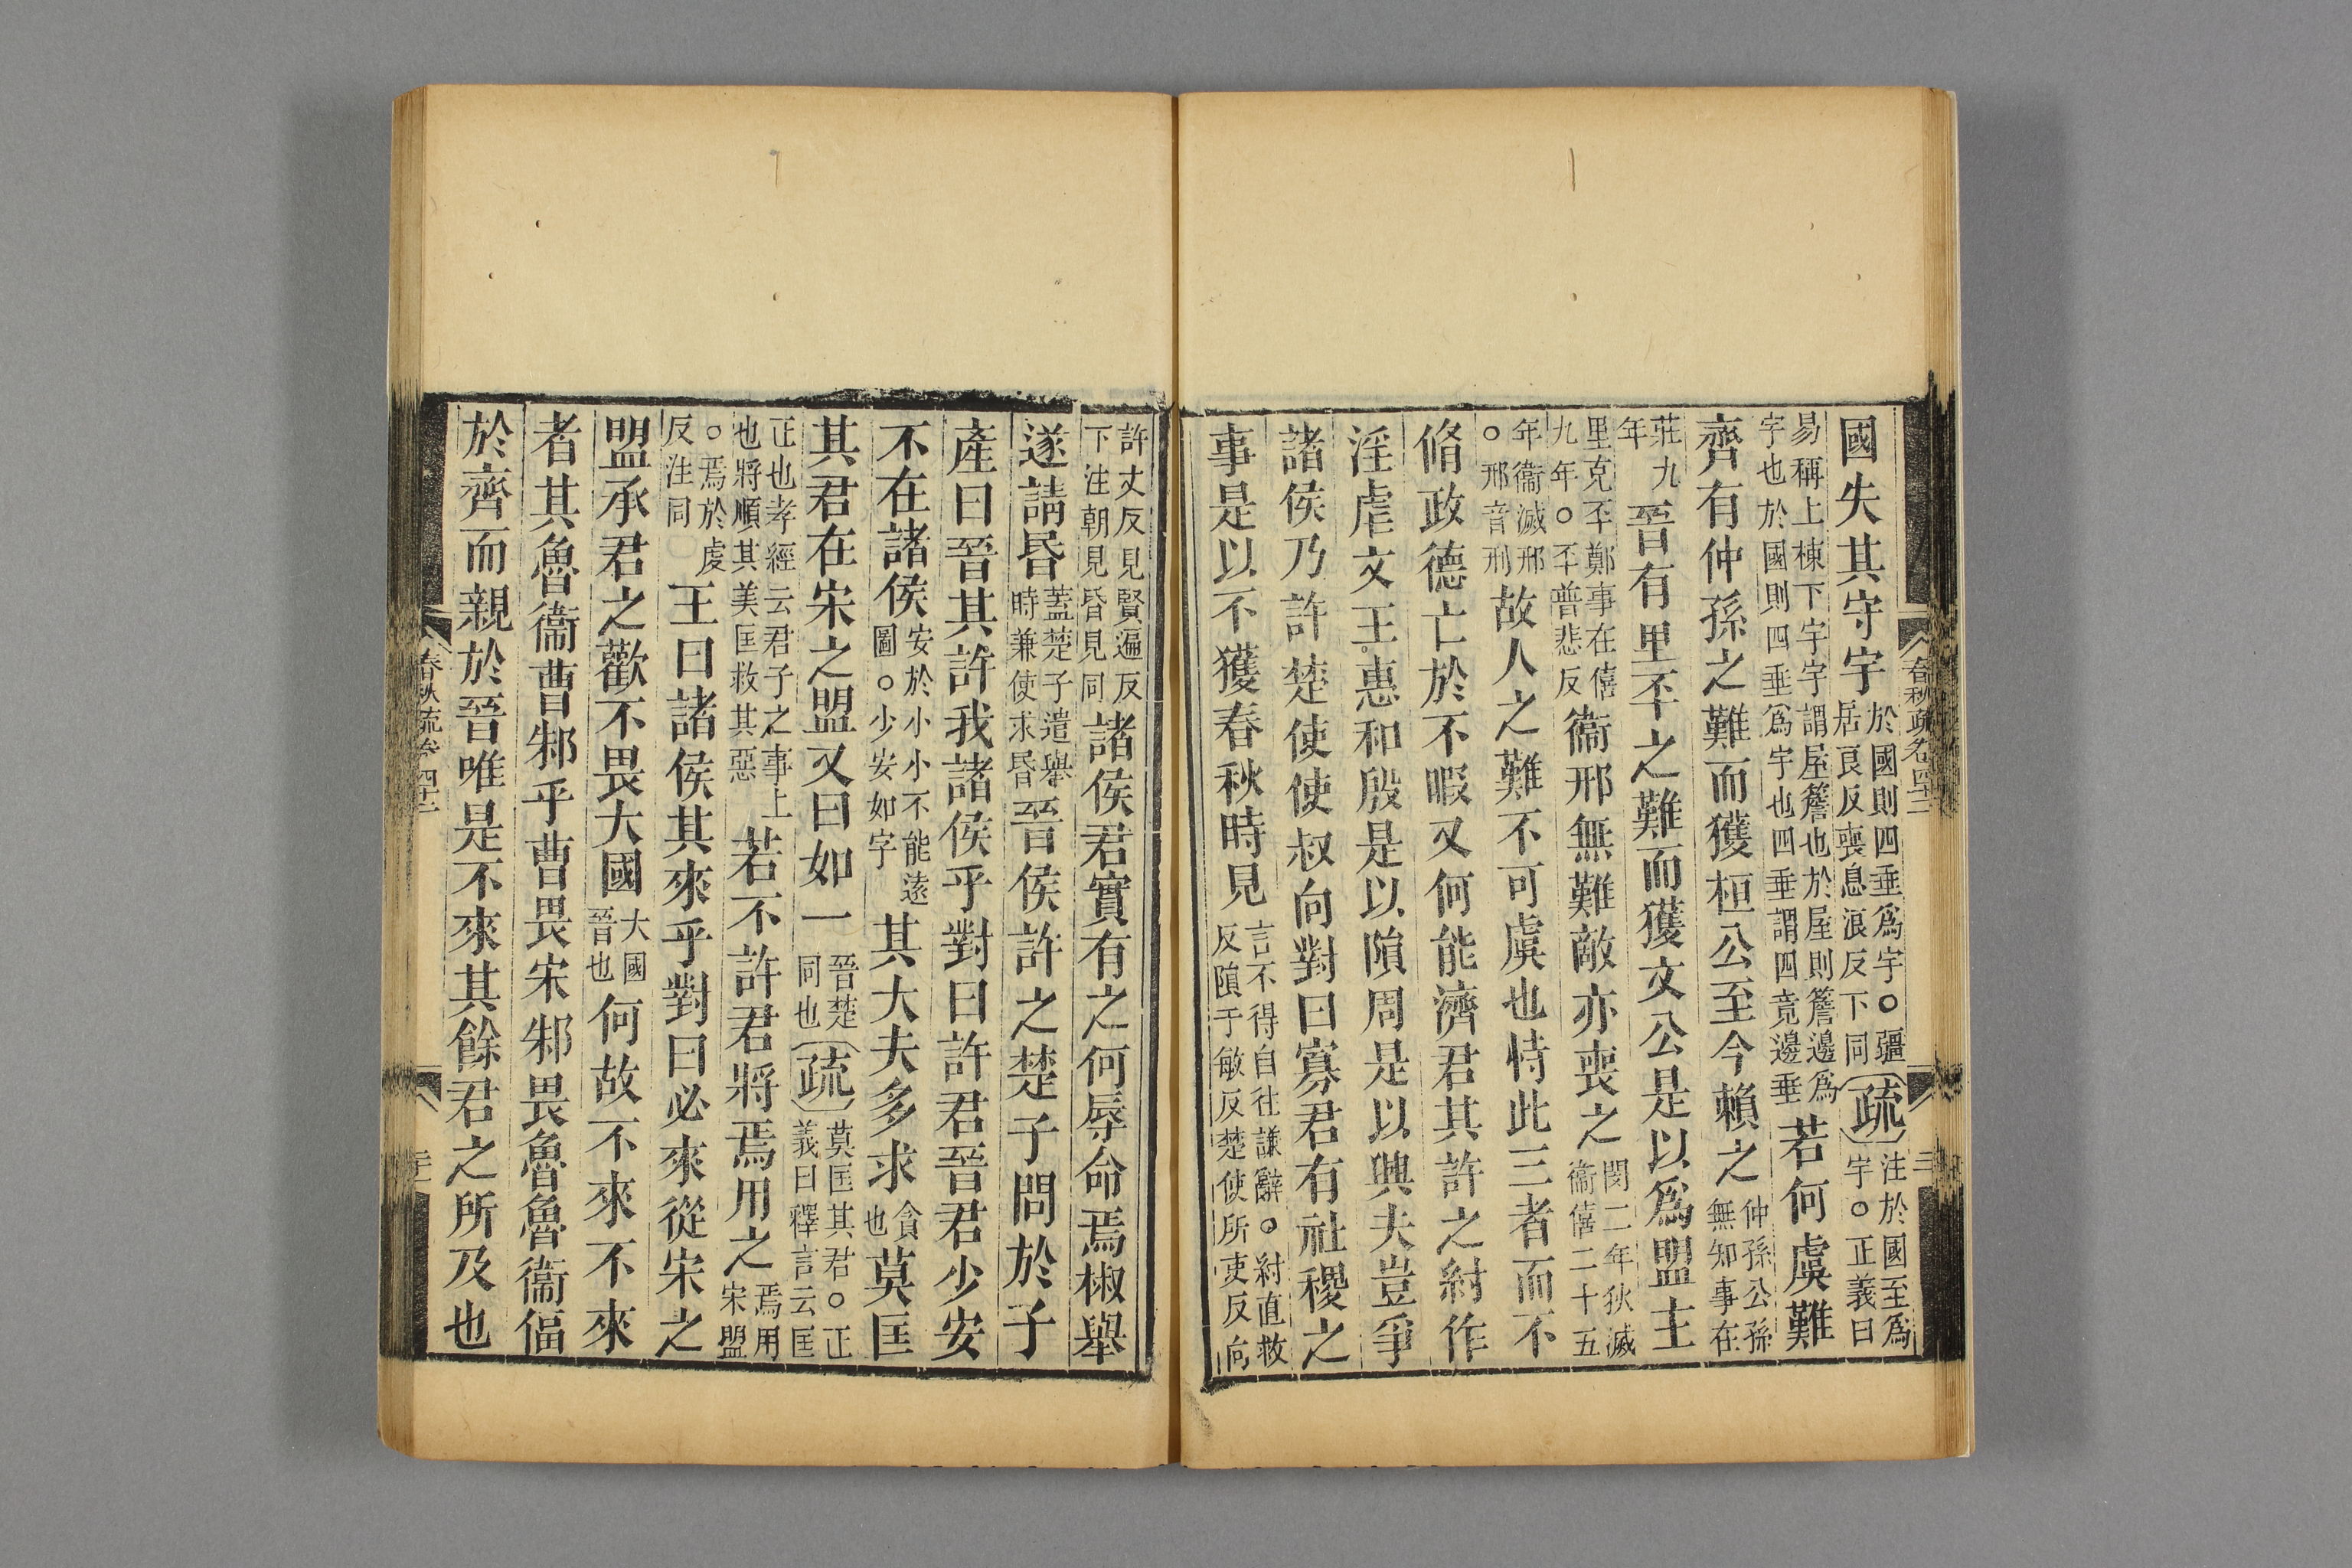 國失其守宇於國則四垂爲宇○疆居良反喪息浪反下同疏注於國至爲宇○正義曰
易稱上棟下宇宇謂屋簷也於屋則簷邊爲宇也於國則四垂爲宇也四垂謂四竟邊垂若何虞難
齊有仲孫之難而獲桓公至今賴之仲孫公孫無知事在
莊九年晉有里丕之難而獲文公是以爲盟主
里克丕鄭事在僖九年○丕普悲反衞邢無難敵亦喪之閔二年狄滅衞僖二十五
年衞滅邢○邢音刑故人之難不可虞也恃此三者而不
脩政德亡於不暇又何能濟君其許之紂作
淫虐文王惠和殷是以隕周是以興夫豈爭
諸侯乃許楚使使叔向對曰寡君有社稷之
事是以不獲春秋時見言不得自往謙辭○紂直救反隕于敏反楚使所吏反向
許丈反見賢遍反下注朝見昏見同諸侯君實有之何辱命焉椒舉
遂請昏蓋楚子遣舉時兼使求昏晉侯許之楚子問於子
產曰晉其許我諸侯乎對曰許君晉君少安
不在諸侯安於小小不能遠圖○少安如字其大夫多求貪也莫匡
其君在宋之盟又曰如一晉楚同也疏莫匡其君○正義曰釋言云匡
正也孝經云君子之事上也將順其美匡救其惡若不許君將焉用之焉用宋盟
○焉於虔反注同王曰諸侯其來乎對曰必來從宋之
盟承君之歡不畏大國大國晉也何故不來不來
者其魯衞曹邾乎曹畏宋邾畏魯魯衞偪
於齊而親於晉唯是不來其餘君之所及也
春秋疏卷四十二
二十
春秋疏卷四十二